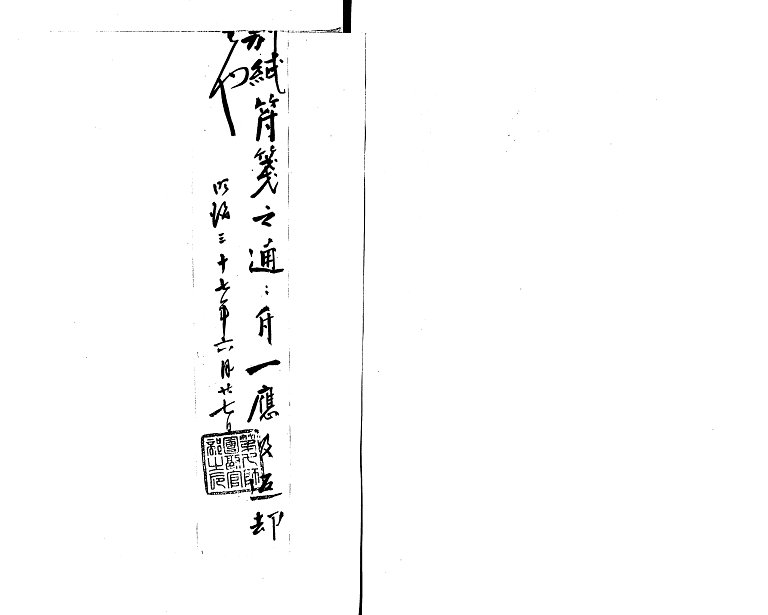 別紙符箋之通ニ付一應及返却
候也
明治三十七年六月廿七日
第七師團司令部之印